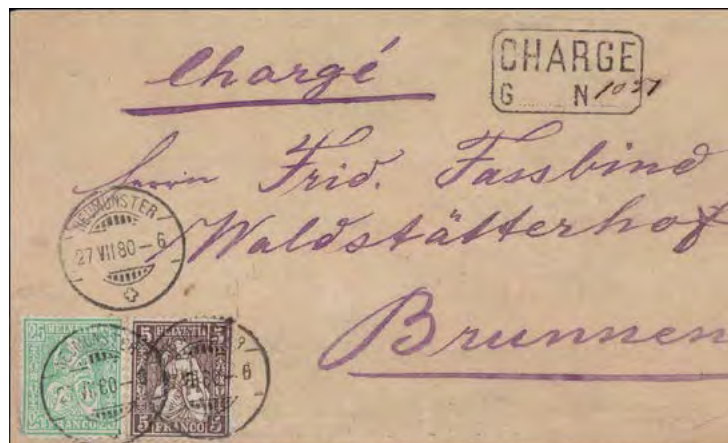 Chargé
CHARGE
G N 1057
Herrn Frid. Fassbind
Waldstätterhof
Brunnen
NEUMÜNSTER
27 VII 80-6
25 HELVETIA 25
25 FRANCO 25
5 HELVETIA 5
5 FRANCO 5
NEUMÜNSTER
27 VII 80-6
VII 80-6